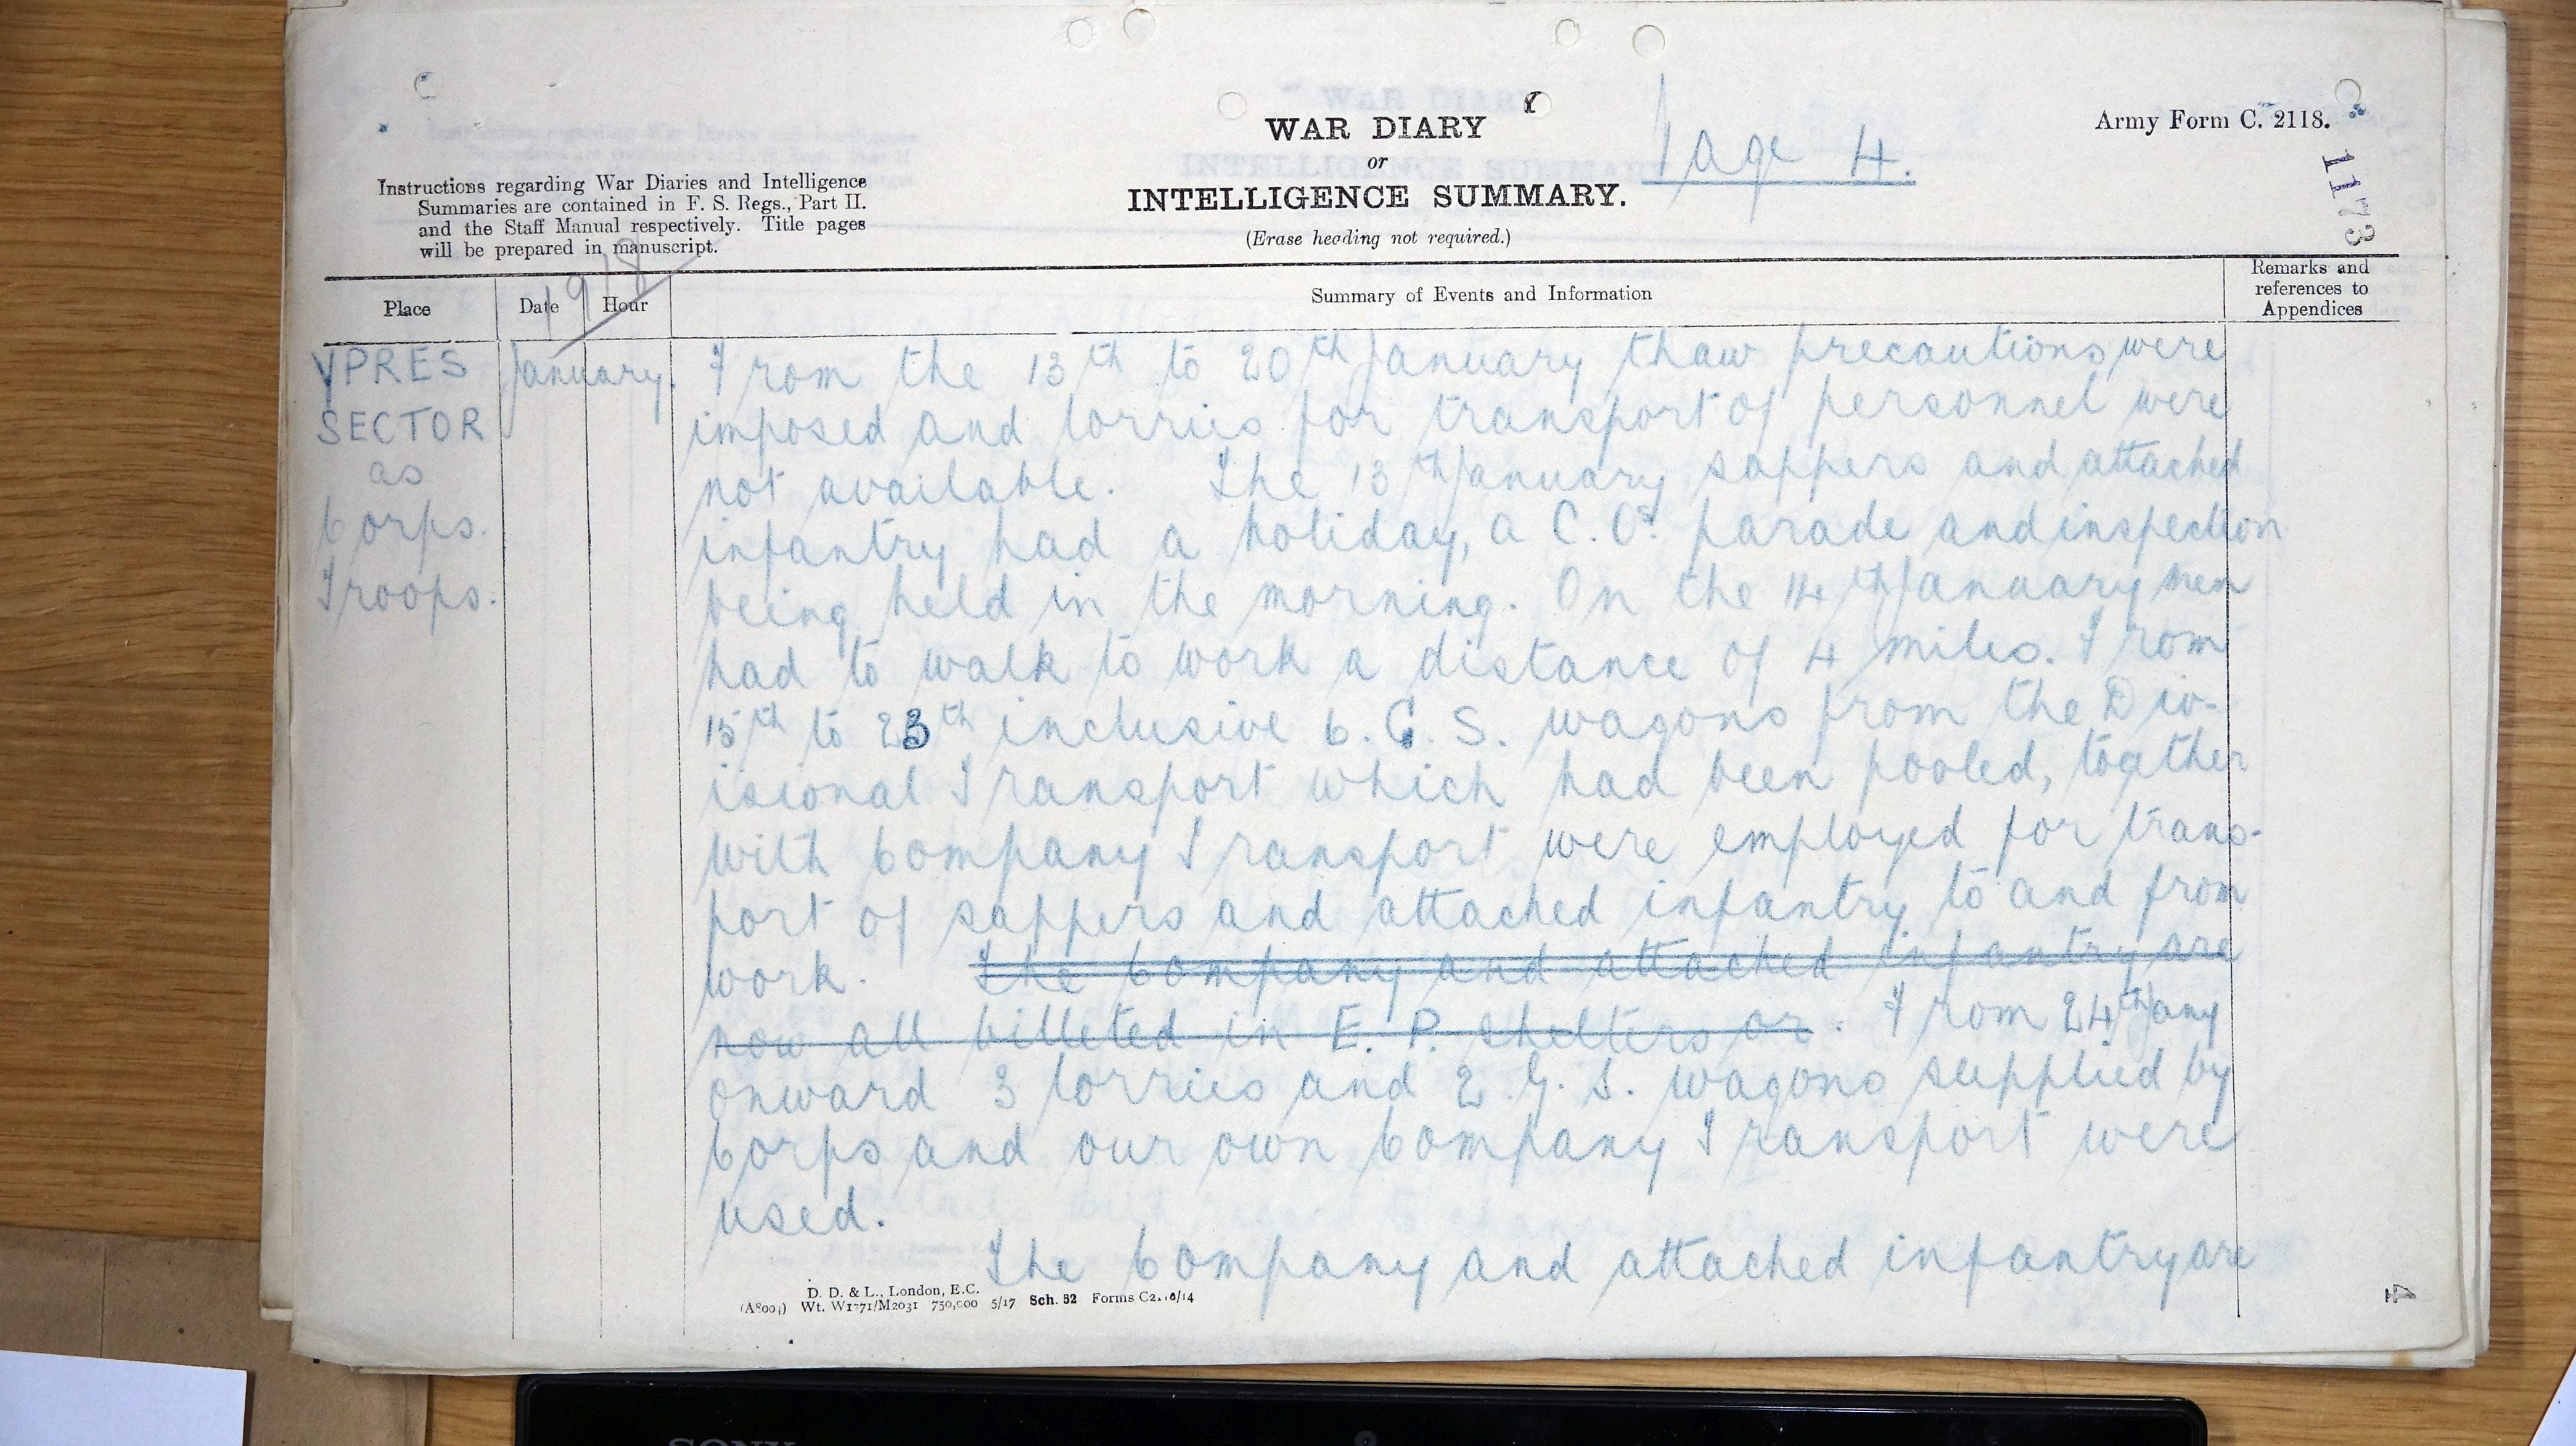 WAR DIARY
or
INTELLIGENCE SUMMARY.
(Erase heading not required.)
Page 4.
Army Form C. 2118.
1173
Instructions regarding War Diaries and Intelligence
Summaries are contained in F. S. Regs., Part II.
and the Staff Manual respectively. Title pages
will be prepared in manuscript.
1918
Place
Date
Hour
Summary of Events and Information
Remarks and
references to
Appendices
YPRES
SECTOR
as
Corps.
Troops.
January.
From the 13th to 20th January thaw precautions were
imposed and lorries for transport of personnel were
not available. The 13th January sappers and attached
infantry had a holiday, a C.O's. parade and inspection
being held in the morning. On the 14th January men
had to walk to work a distance of 4 miles. From
15th to 23th inclusive 6. G. S. wagons from the Div-
isional Transport which had been pooled, together
with Company Transport were employed for trans-
port of sappers and attached infantry to and from
work. The Company and attached infantry are
now all billeted in E. P. shelters or. From 24th Jany
onward 3 lorries and 2 G. S. wagons supplied by
Corps and our own Company Transport were
used.
The Company and attached infantry are
D. D. & L., London, E.C.
Wt. W1771/M2031 750,000 5/17 Sch. 52 Forms C2118/14
4
SONY